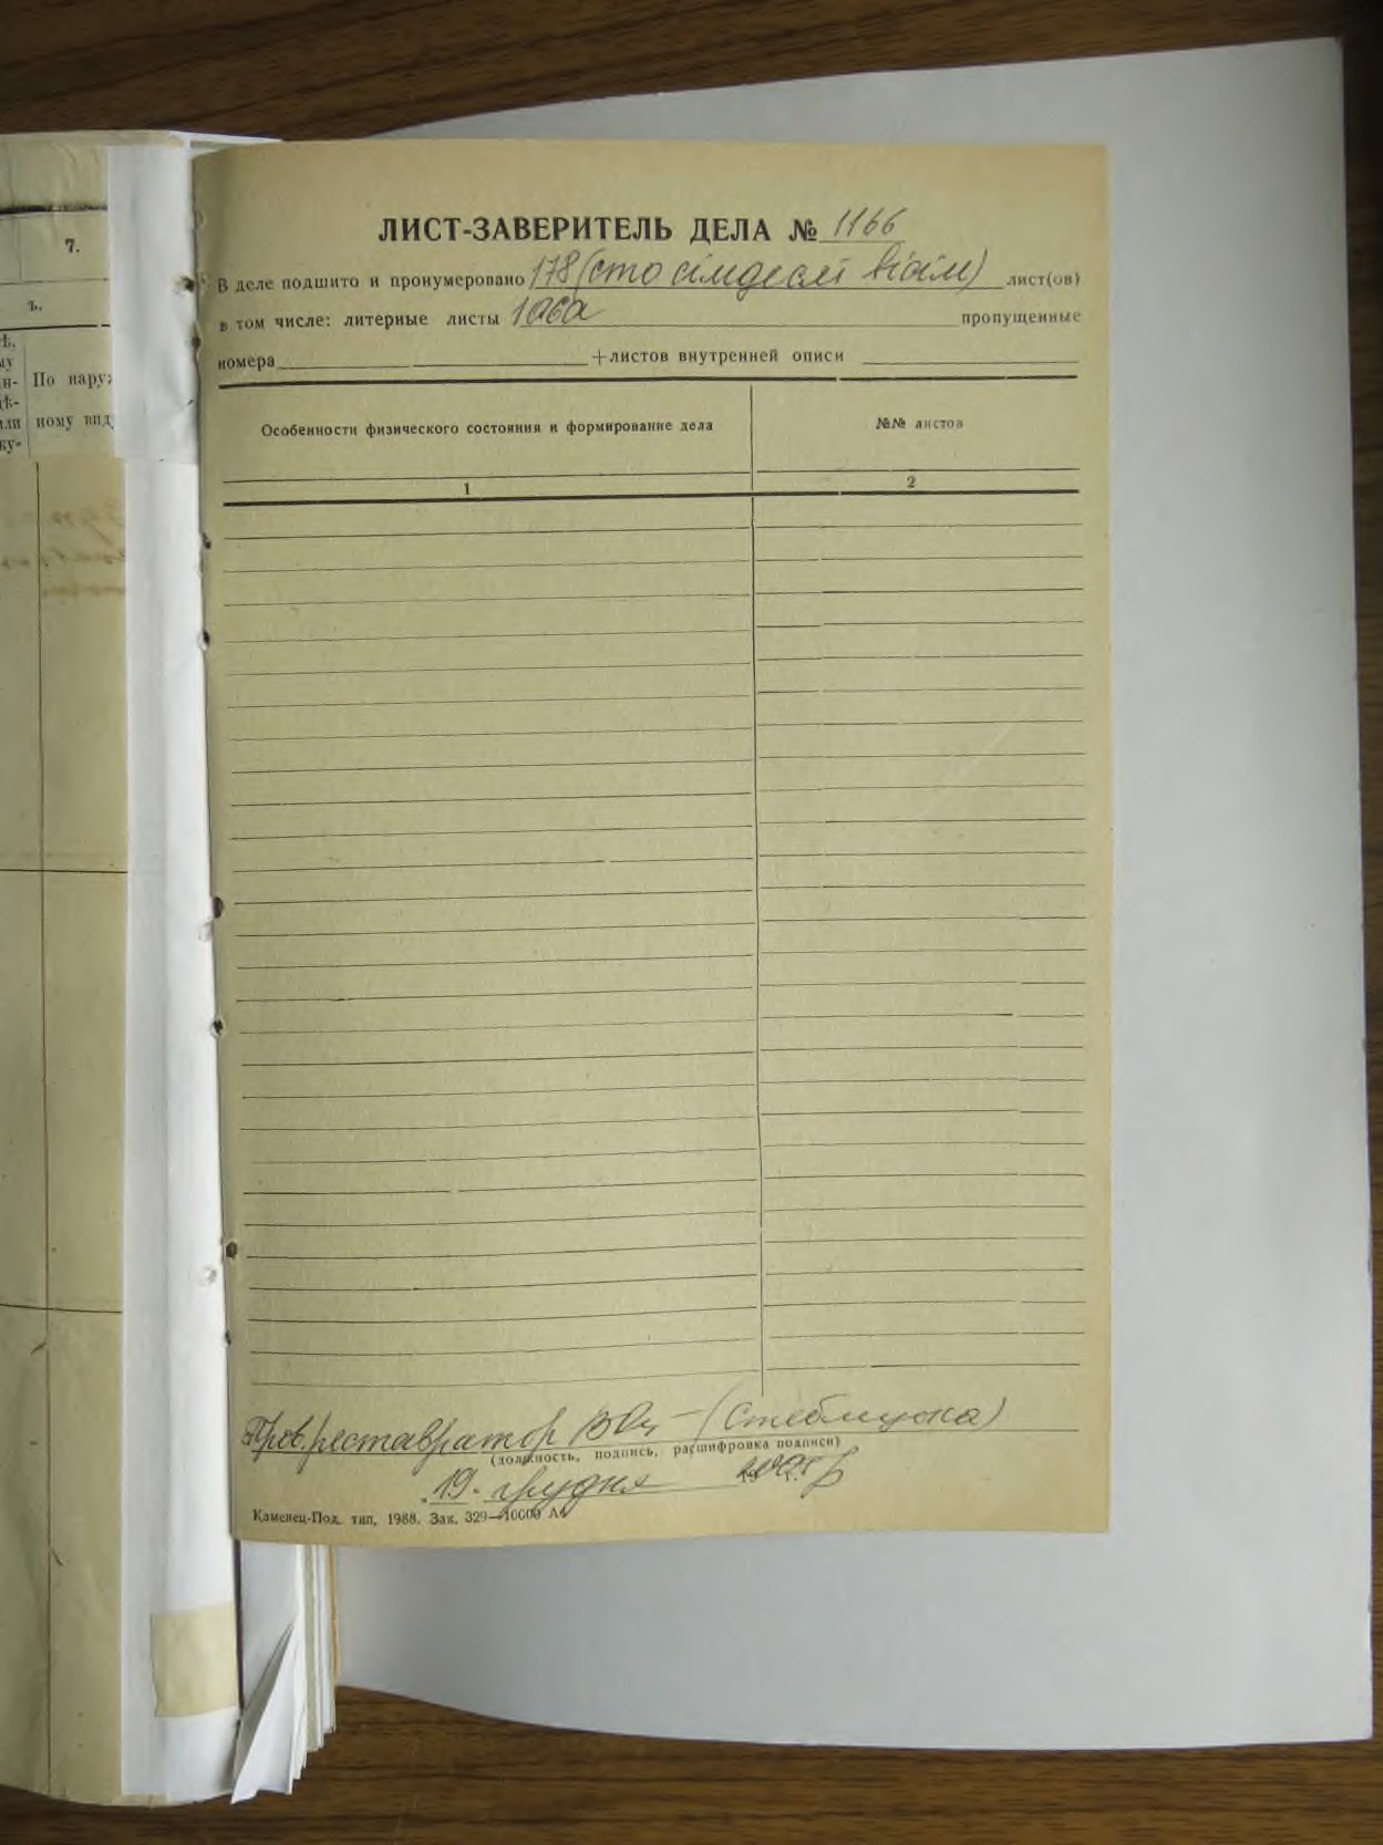 7.
ъ.
По наруж
ному вид
ЛИСТ-ЗАВЕРИТЕЛЬ ДЕЛА № 1166
В деле подшито и пронумеровано 178 (сто сімдесят вісім) лист(ов)
в том числе: литерные листы 106а пропущенные
номера +листов внутренней описи
Особенности физического состояния и формирование дела
№№ листов
1
2
Пров. реставратор (Стеблицька)
(должность, подпись, расшифровка подписи)
19 грудня
Каменец-Под. тип, 1988. Зак. 329—10000 А4